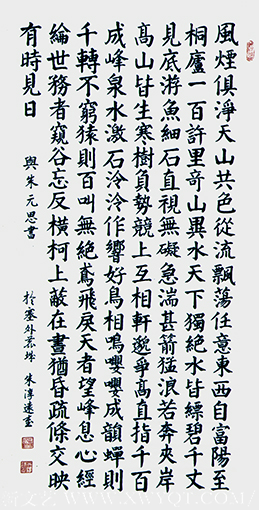 風煙俱淨天山共色從流飄蕩任意東西自富陽至
桐廬一百許里奇山異水天下獨絕水皆縹碧千丈
見底游魚細石直視無礙急湍甚箭猛浪若奔夾岸
髙山皆生寒樹負勢競上互相軒邈爭髙直指千百
成峰泉水激石泠泠作響好鳥相鳴嚶嚶成韻蟬則
千轉不窮猿則百叫無絕鳶飛戾天者望峰息心經
綸世務者窺谷忘反橫柯上蔽在晝猶昏疏條交映
有時見日 與朱元思書 於塞外 朱